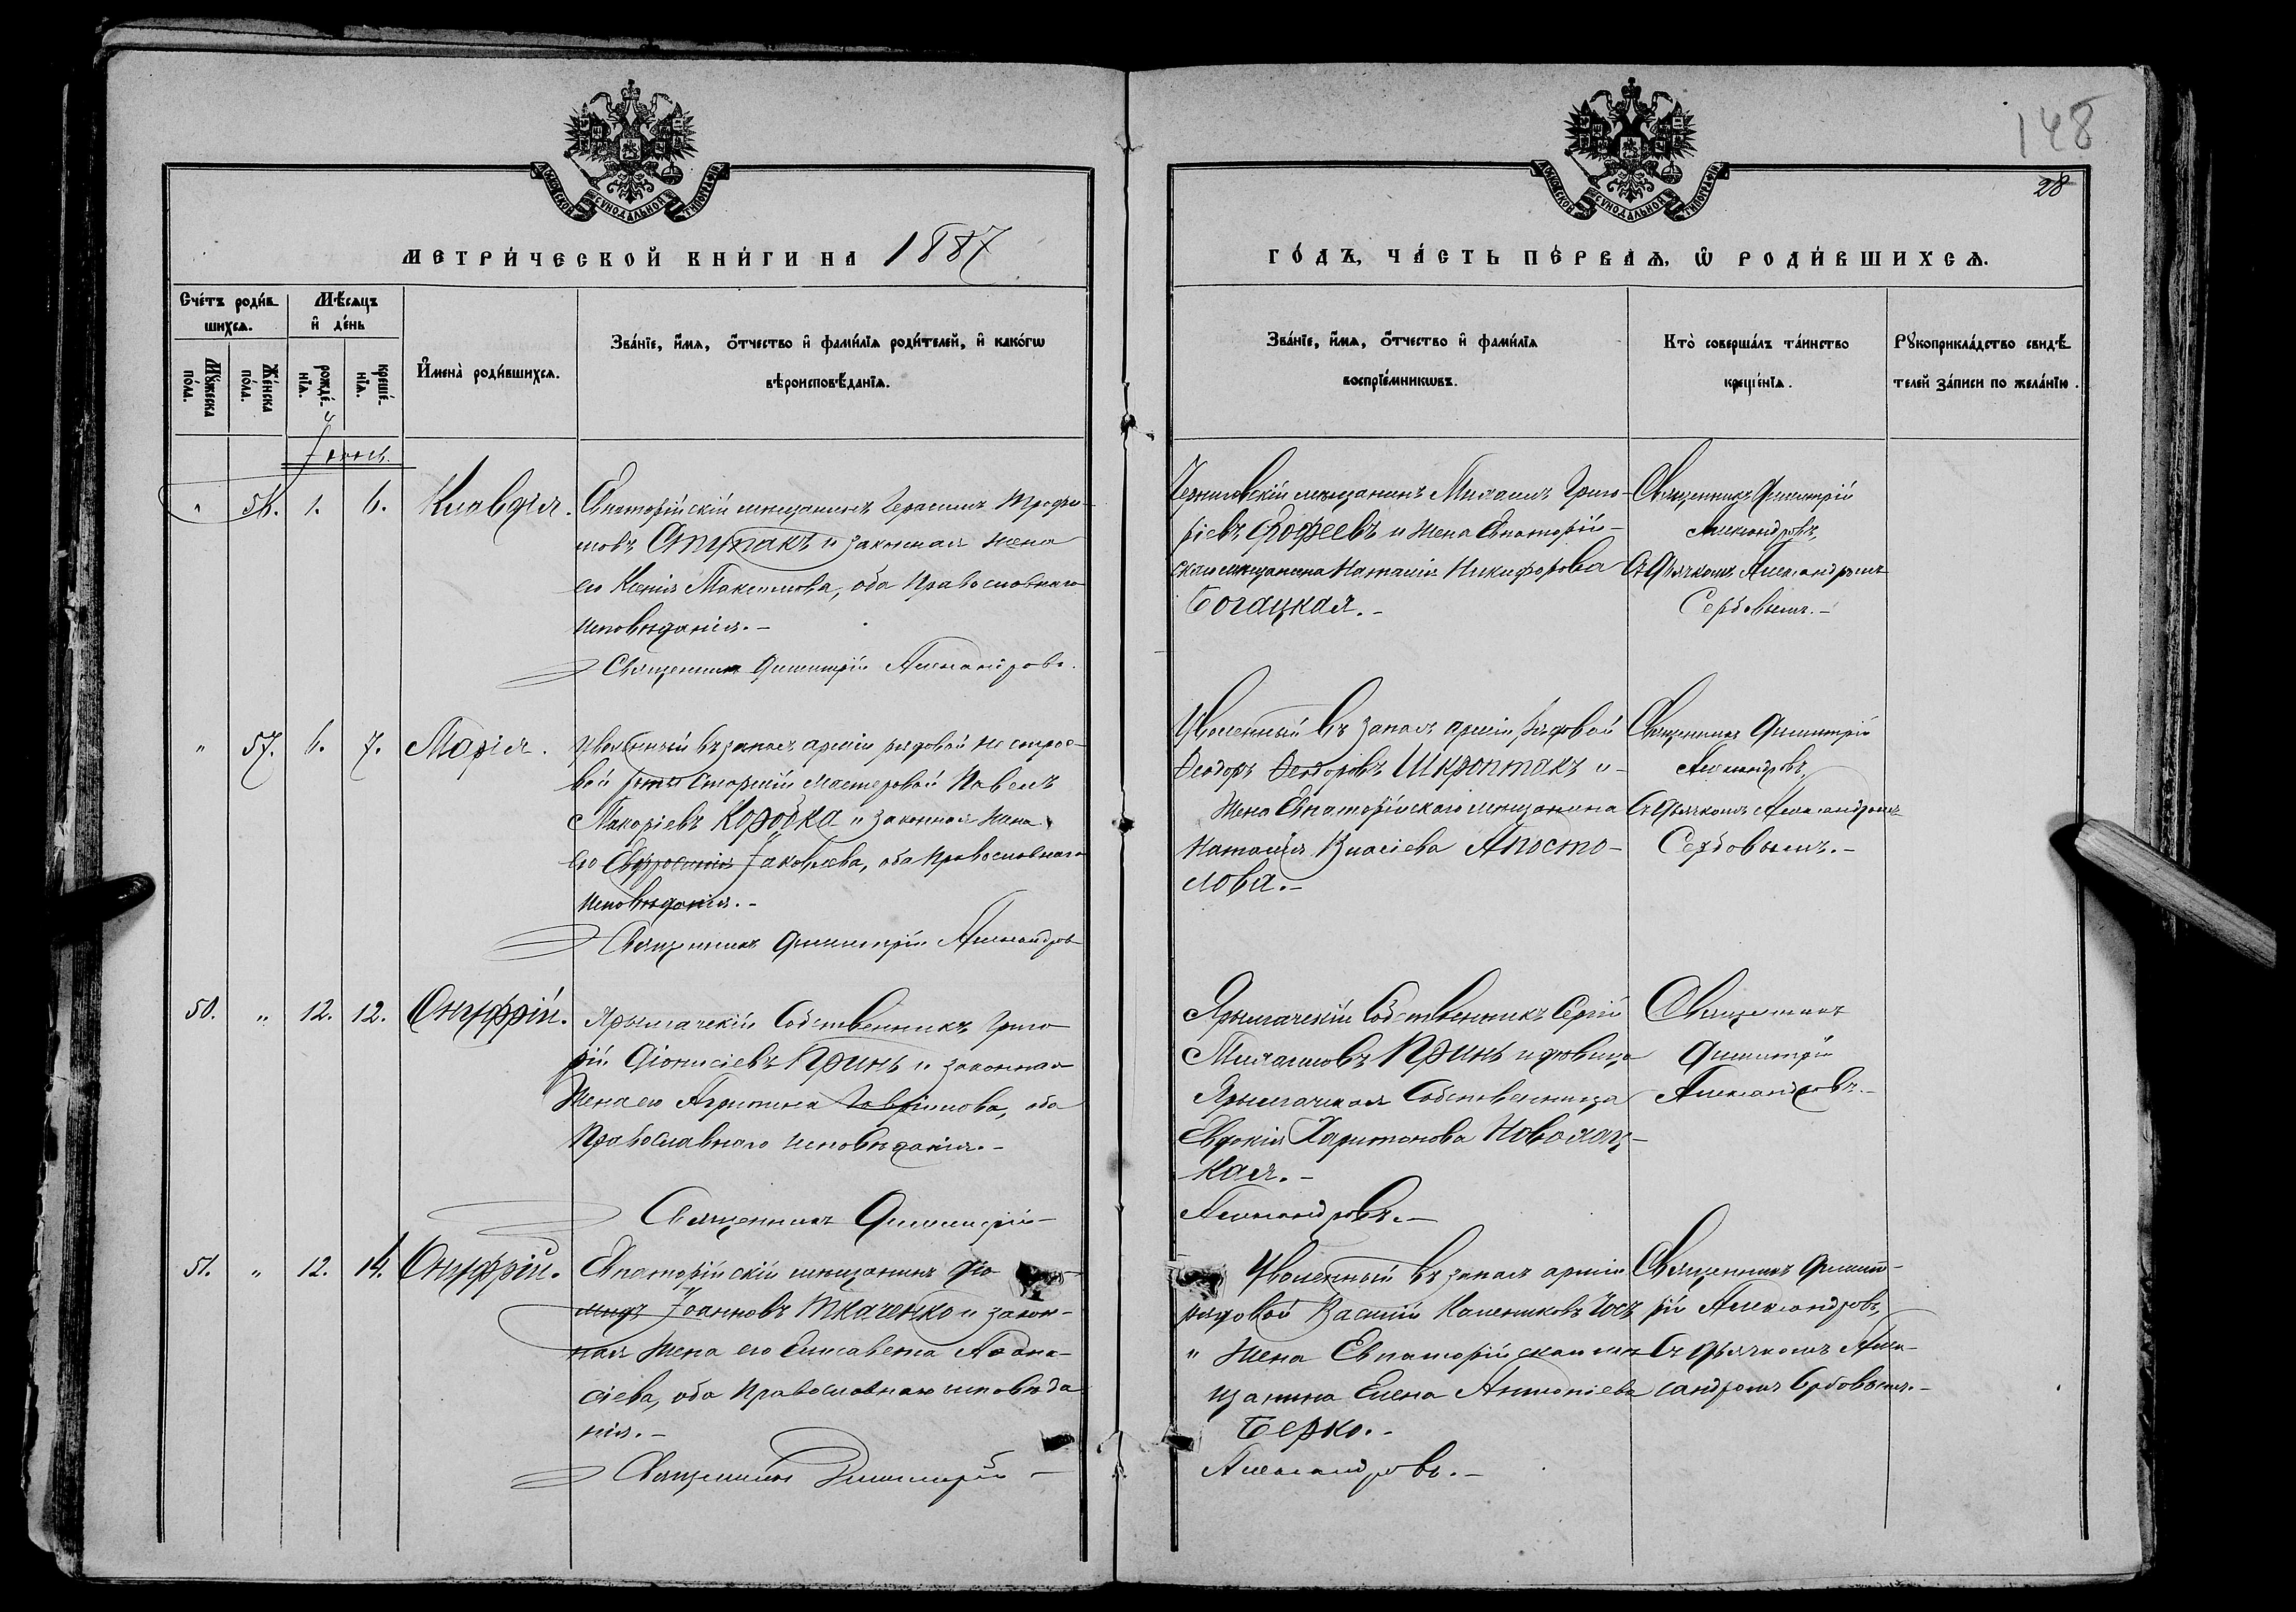 148
28
МОСКОВСКОЙ СѴНОДАЛЬНОЙ ТИПОГРАФІИ
МОСКОВСКОЙ СѴНОДАЛЬНОЙ ТИПОГРАФІИ
МЕТРИ́ЧЕСКОЙ КНИ́ГИ НА 1887
ГО́ДЪ, ЧА́СТЬ ПЕ́РВАѦ, Ѡ҆ РОДИ́ВШИХСѦ.
Сче́тъ роди́в
шихсѧ.
Мꙋ́жеска
по́ла.
Же́нска
по́ла.
Мѣ́сѧцъ
и҆ де́нь
рожде́-
нїѧ.
креще́-
нїѧ.
И҆мена̀ роди́вшихсѧ.
Зва́нїе, и҆́мѧ, ѻ҆́тчество и҆ фами́лїѧ роди́телей, и҆ како́гѡ
вѣроисповѣ́данїѧ.
Зва́нїе, и҆́мѧ, ѻ҆́тчество и҆ фами́лїѧ
воспрїе́мникѡвъ.
Кто̀ соверша́лъ та́инство
креще́нїѧ.
Рꙋкоприкла́дство свидѣ́-
телей за́писи по жела́нїю.
Іюнь.
" 56. 1. 6. Клавдія.
Евпаторійскій мѣщанинъ Герасимъ Трофи-
мовъ Ступакъ и законная жена
его Ксенія Максимова, оба Православнаго
исповѣданія.-
Священникъ Димитрій Александровъ.
Черниговскій мѣщанинъ Михаилъ Григо-
ріевъ Ерофеевъ и жена Евпаторій-
скаго мѣщанина Наталія Никифорова
Богацкая.-
Священникъ Димитрій
Александровъ,
Съ Дьячкомъ Александромъ
Сербовымъ.-
" 57. 6. 7. Марія.
Уволенный въ запасъ арміи рядовой не строе-
вой роты старшій мастеровой Павелъ
Макаріевъ Коробка и законная жена
его Евфросинія Іаковлева, оба Православнаго
исповѣданія.-
Священникъ Димитрій Александровъ
Уволенный въ запасъ арміи рядовой
Ѳеодоръ Ѳеодоровъ Шкроптакъ и
жена Евпаторійскаго мѣщанина
Наталія Власіева Апосто-
лова.-
Священникъ Димитрій
Александровъ,
Съ Дьячкомъ Александромъ
Сербовымъ.-
50. " 12. 12. Онуфрій.
Ярылгачскій Собственникъ Григо
рій Діонисіевъ Принь и законная
жена его Агрипина Гавріилова, оба
Православнаго исповѣданія.-
Священникъ Димитрій-
Ярылгачскій Собственникъ Сергій
Михаиловъ Принь и дѣвица
Ярылгачская Собственница
Евдокія Харитонова Новохац-
кая.-
Александровъ.-
Священникъ
Димитрій
Александровъ.-
51. " 12. 14. Онуфрій.
Евпаторійскій мѣщанинъ Діо
мидъ Іоанновъ Ткаченко и закон-
ная жена его Елисавета Аѳана-
сіева, оба Православнаго исповѣда
нія.-
Священникъ Димитрій -
Уволенный въ запасъ арміи
рядовой Василій Калениковъ
и жена Евпаторійскаго мѣ-
щанина Елена Антоніева
Берко.-
Александровъ.-
Священникъ Димит-
рій Александровъ,
Съ Дьячкомъ Алек-
сандромъ Сербовымъ.-